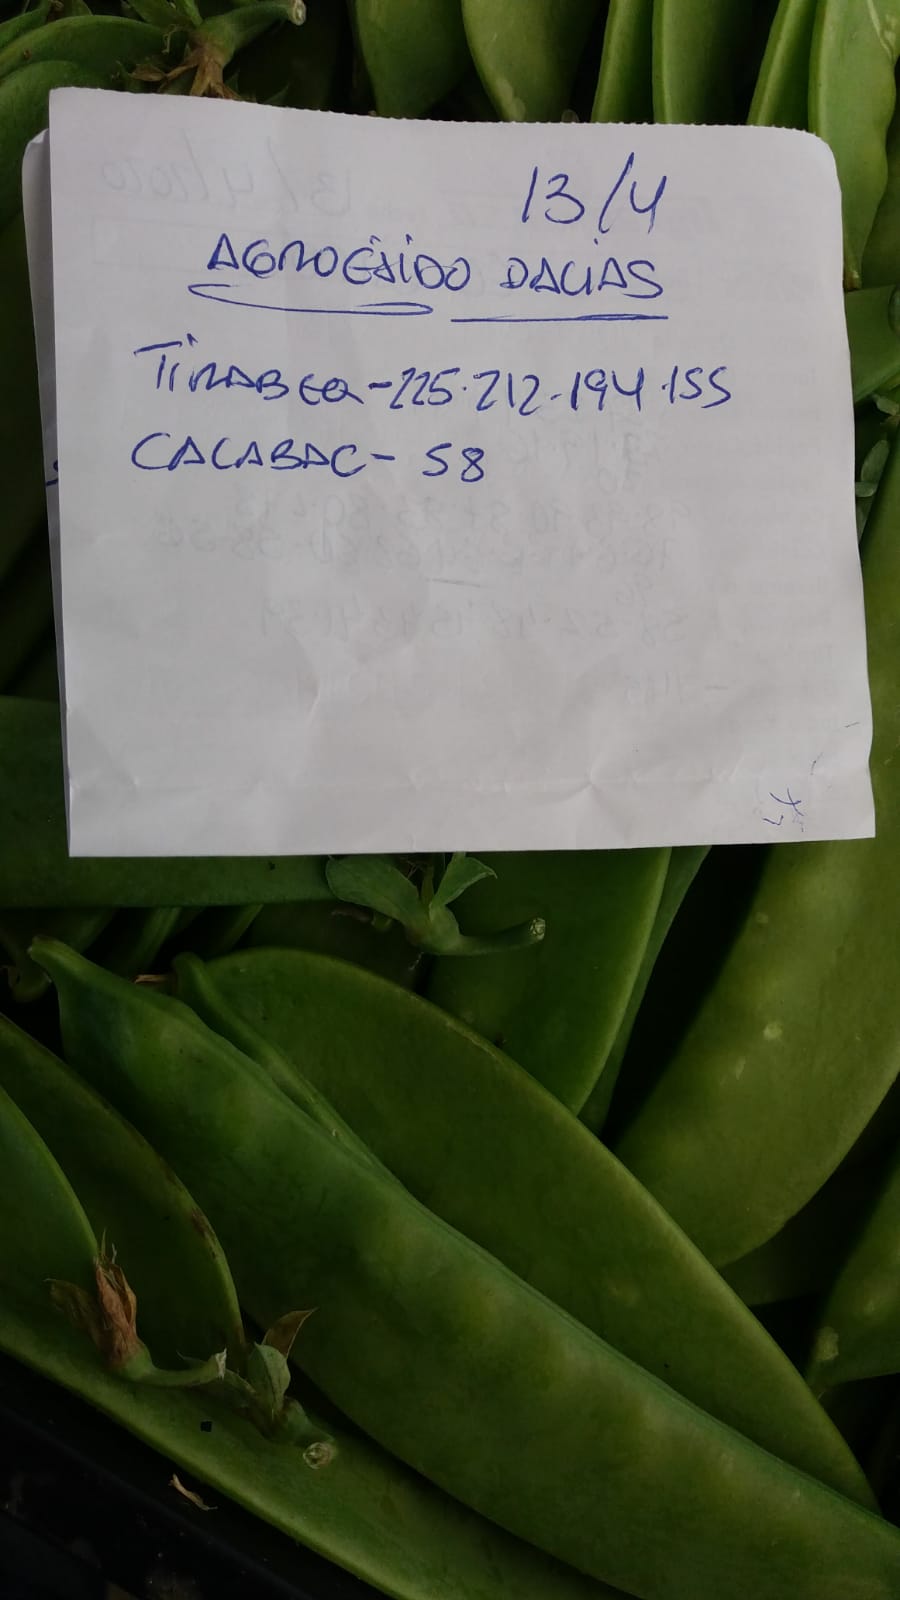 13/4
AGROEJIDO DALIAS
TIRABEQ-225.212.194.155
CALABAC-58